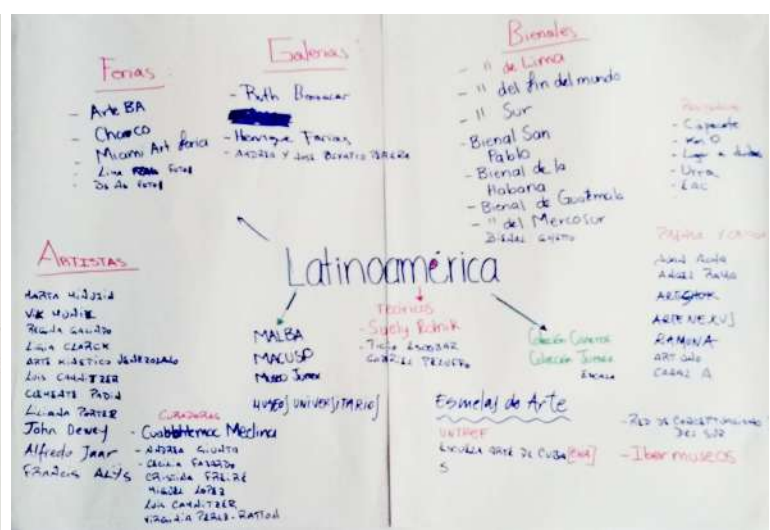 Ferias:
- Arte BA
- Chaco
- Miami Art feria
- Lima Fotos
Galerias:
- Ruth Benzacar
- Henrique Farias
- ANDRES Y JOSE
Bienales
- " de Lima
- " del fin del mundo
- " Sur
- Bienal San
Pablo
- Bienal de la
Habana
- Bienal de Guatemala
- " del Mercosur
BIENAL
- Capacete
- Km 0
- Lugar a dudas
- Urra
Latinoamérica
ARTISTAS
MARTA MINUJIN
VIK MUNIK
REGINA GALINDO
LIGIA CLARCK
ARTE KINETICO VENEZOLANO
LUIS CAMNITZER
CLEMENTE PADIN
LILIANA PORTER
John Dewey
Alfredo Jaar
FRANCIS ALYS
CURADORES
- Cuauhtemoc Medina
- ANDREA GIUNTA
- CECILIA FAJARDO
CRISTINA FREIRE
MIGUEL LOPEZ
LUIS CAMNITZER
VIRGINIA PEREZ-RATTON
MALBA
MACUSP
MUSEO JUMEX
MUSEOS UNIVERSITARIOS
Teóricos
- Suely Rolnik
- TICIO ESCOBAR
Colección Cisneros
Colección Jumex
ESCALA
Escuelas de Arte
UNTREF
ESCUELA ARTE DE CUBA
S
JUAN ACHA
ANGEL RAMA
ARTE NEXUS
RAMONA
CANAL A
- RED DE CONCEPTUALISMO
DEL SUR
- Ibermuseos